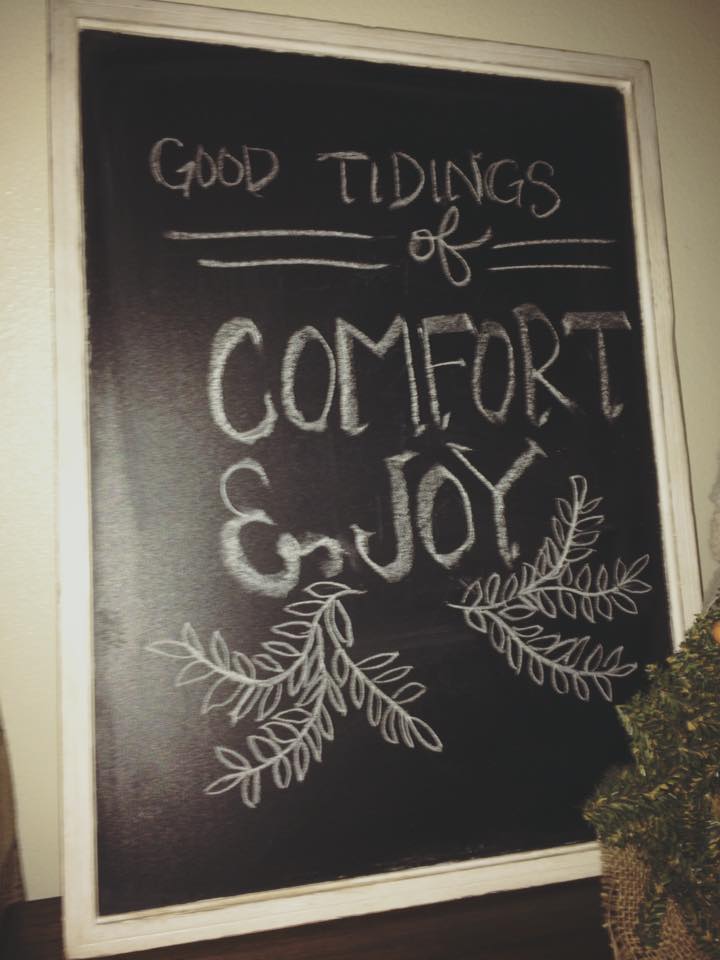 GOOD TIDINGS
of
COMFORT
& JOY